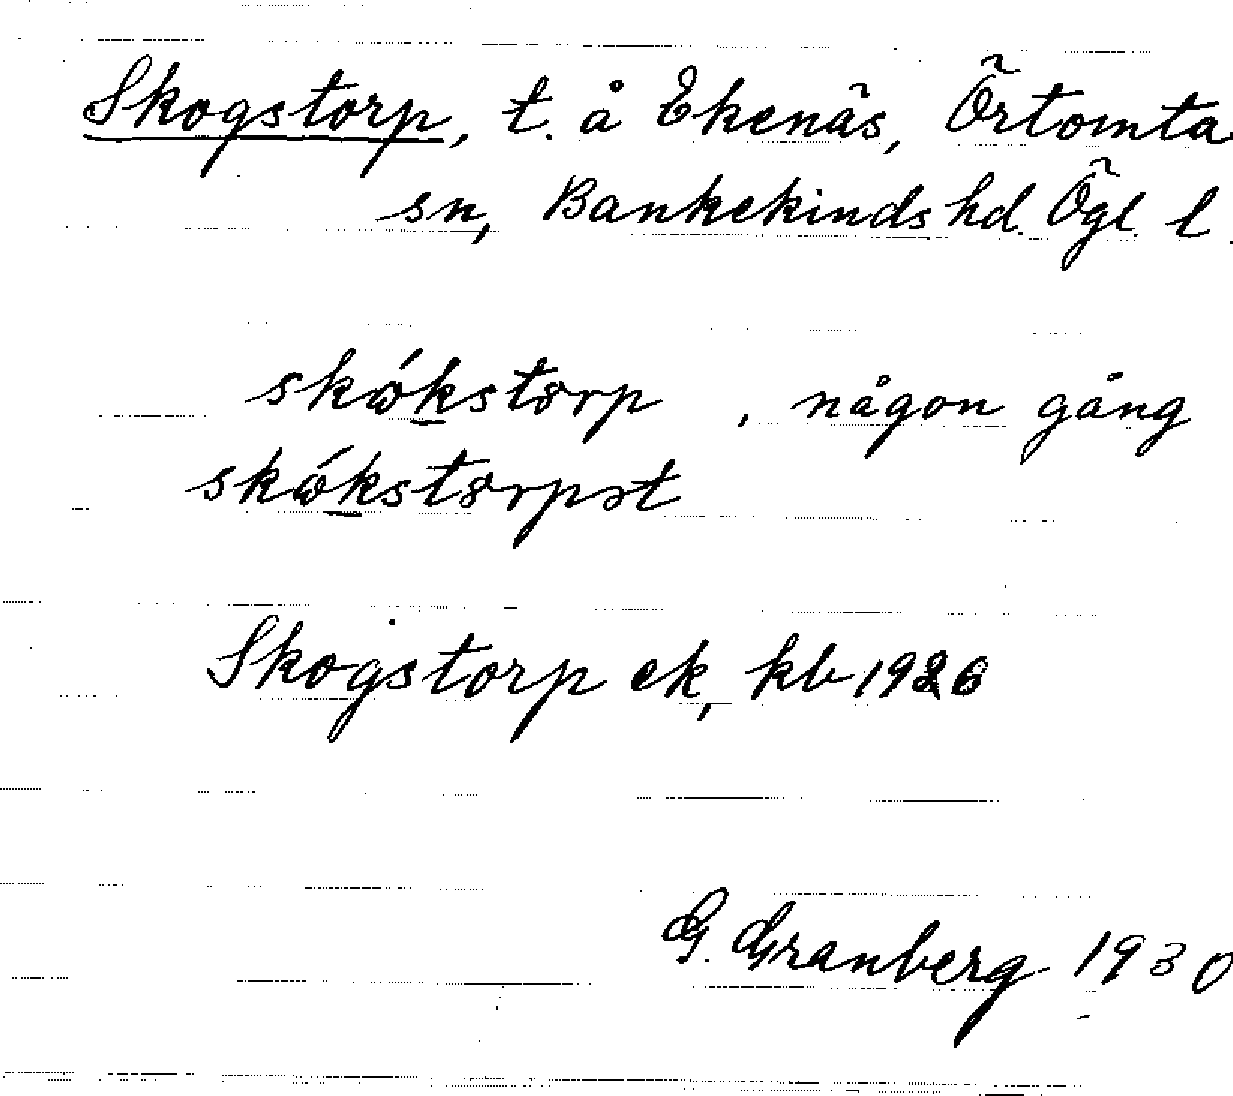 Skogstorp, t. å Ekenäs, Örtomta
sn, Bankekinds hd. Ögl. l.
skǿkstørp, någon gång
skǿkstørpət
Skogstorp ek, kb 1926
G. Granberg 1930